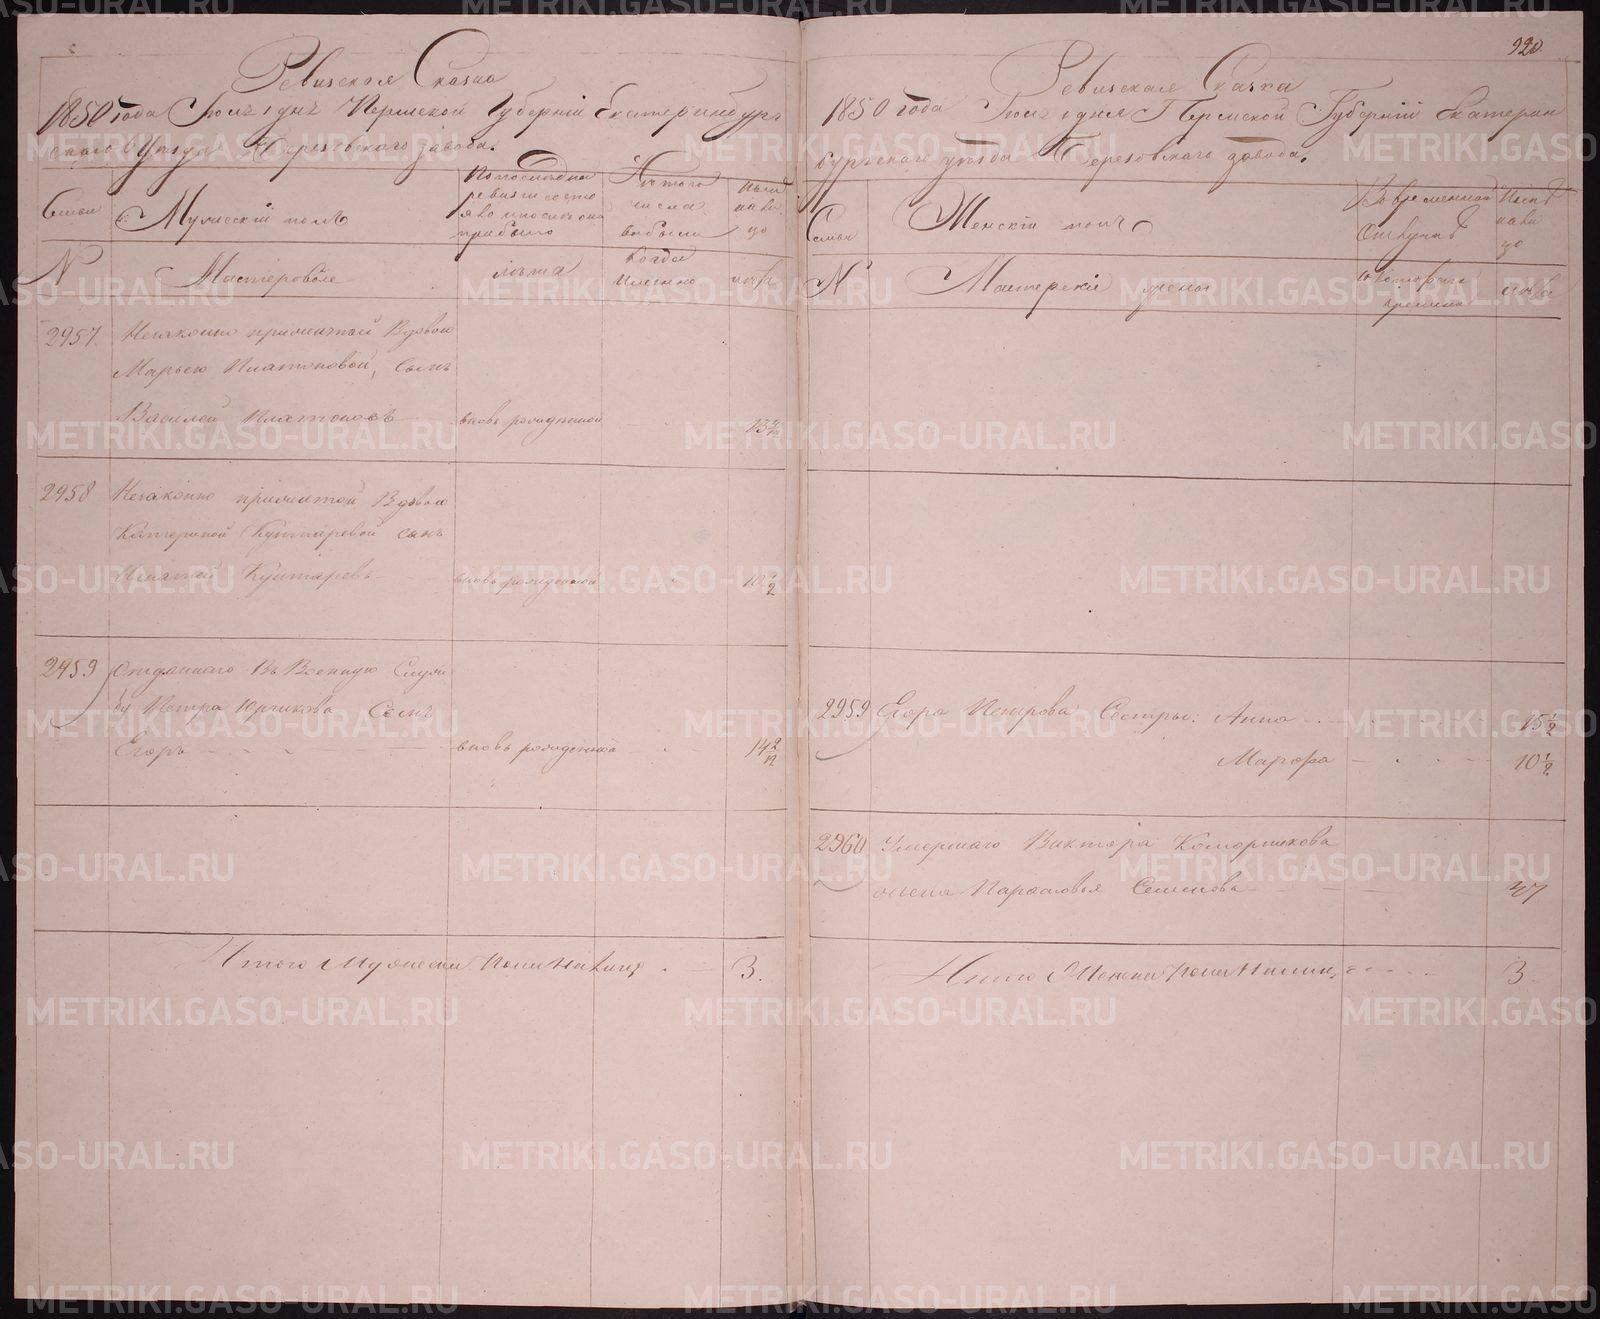 Ревизская Сказка
1850 года Июль 1 дня Пермской Губерніи Екатеринбург
скаго Уезда Березовскаго завода.
Семьи
Мужескій полъ
По последней
ревизіи состо
яло и после она
прибыло
Изъ того
числа
выбыло
Ныне
на ли
цо
N
Мастеровые
лета
когда
имянно
лета
2957 Незаконно прижитой Вдовою
Марьею Платоновой, сынъ
Василей Платоновъ вновь рожденной 13 2/12
2958 Незаконно прижитой Вдовою
Катериной Кунтаревой сынъ
Игнатей Кунтаревъ вновь рожденной 10 1/2
2959 Отданнаго въ Военную Служ
бу Петра Юрчикова Сынъ
Егоръ вновь рожденной 14 2/12
Итого Мужеска Пола Налицо 3.
920.
Ревизская Сказка
1850 года Июль 1 дня Пермской Губерніи Екатерин
бургскаго уезда Березовскаго завода.
Семьи
Женскій полъ
Въ временной
отлучке
Ныне
на ли
цо
N
Мастерскіе жены
съ котораго
времени
лета
2959 Егора Петрова Сестры: Анна 15 1/2
Марфа 10 1/2
2960 Умершаго Виктора Коморникова
жена Парасковья Семенова 37
Итого Женска Пола Налицо 3
METRIKI.GASO-URAL.RU